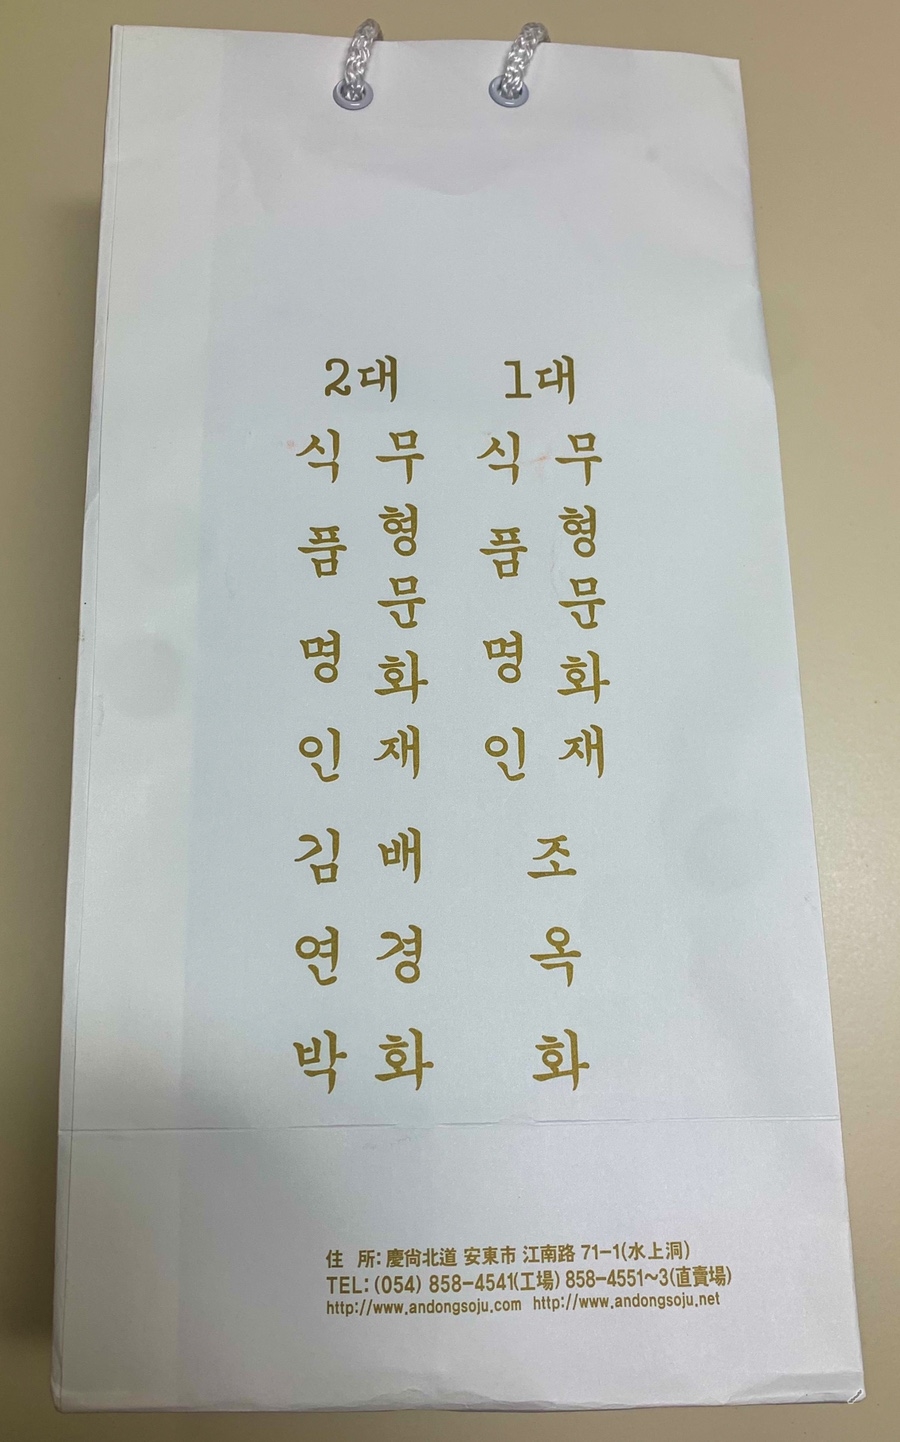 1대
무형문화재
식품명인
조옥화
2대
무형문화재 배경화
식품명인 김연박
住 所: 慶尙北道 安東市 江南路 71-1(水上洞)
TEL: (054) 858-4541(工場) 858-4551~3(直賣場)
http://www.andongsoju.com http://www.andongsoju.net